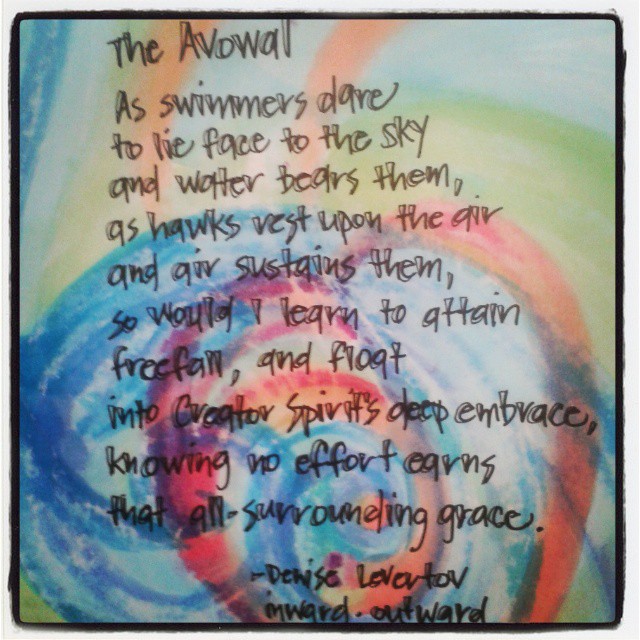 The Avowal
As swimmers dare
to lie face to the sky
and water bears them,
as hawks rest upon the air
and air sustains them,
so would I learn to attain
freefall, and float
into Creator Spirit's deep embrace,
knowing no effort earns
that all-surrounding grace.
-Denise Levertov
inward·outward